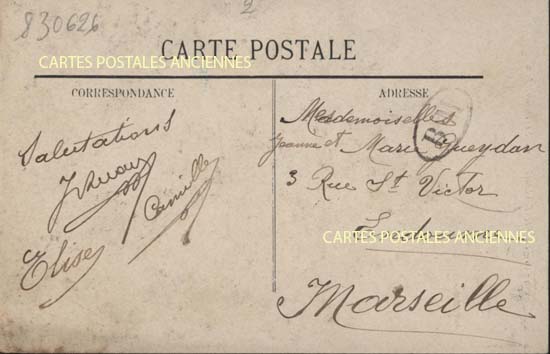 830626
2
CARTE POSTALE
CARTES POSTALES ANCIENNES
CORRESPONDANCE
ADRESSE
Salutations
Camille
Elise
Mesdemoiselles
Jeanne et Marie Gueydan
3 Rue St Victor
CARTES POSTALES ANCIENNES
Marseille